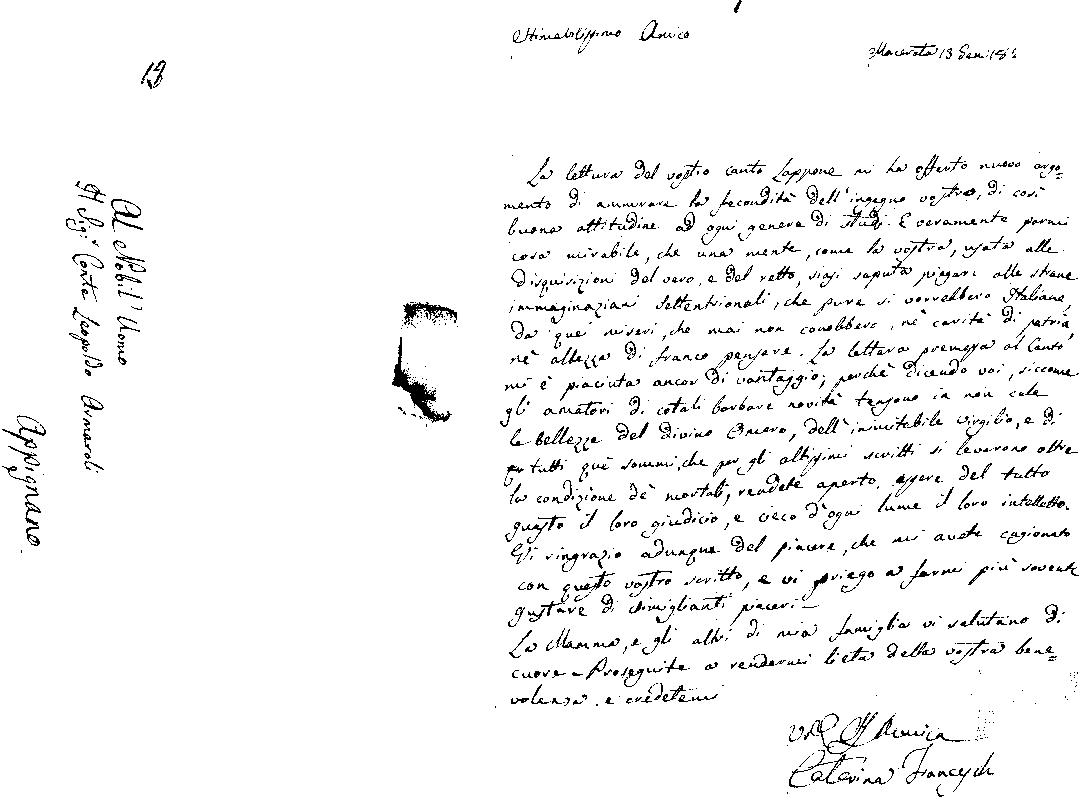 13
Al Nobil' Uomo
Il Sigr Conte Leopoldo Armaroli
Appignano.
Stimabilissimo Amico
Macerata 13 Gen:
La lettura del vostro canto Lappone mi ha offerto nuovo argo=
mento di ammirare la fecondità dell'ingegno vostro, di così
buona attitudine ad ogni genere di studj. E veramente parmi
cosa mirabile, che una mente, come la vostra, usata alle
disquisizioni del vero, e del retto, siasi saputa piegare alle strane
immaginazioni settentrionali, che pure si vorrebbero Italiane,
da que' miseri, che mai non conobbero, nè carità di patria,
nè altezza di franco pensare. La lettera premessa al Canto
mi è piaciuta ancor di vantaggio; perchè dicendo voi, siccome
gli amatori di cotali barbare novità tengono in non cale
le bellezze del divino Omero, dell'inimitabile Virgilio, e di
tutti que' sommi, che per gli altissimi scritti si levarono oltre
la condizione de' mortali, rendete aperto, essere del tutto
guasto il loro giudicio, e cieco d'ogni lume il loro intelletto.
Vi ringrazio adunque del piacere, che mi avete cagionato
con questo vostro scritto, e vi priego a farmi più sovente
gustare di simiglianti piaceri -
La Mamma, e gli altri di mia famiglia vi salutano di
cuore - Proseguite a rendermi lieta della vostra bene=
volenza, e credetemi
Amica
Caterina Franceschi